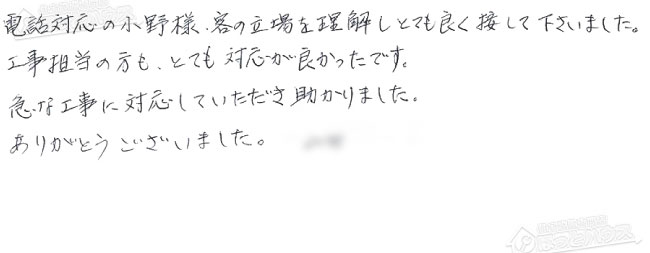 電話対応の小野様、客の立場を理解しとても良く接して下さいました。
工事担当の方も、とても対応が良かったです。
急な工事に対応していただき助かりました。
ありがとうございました。